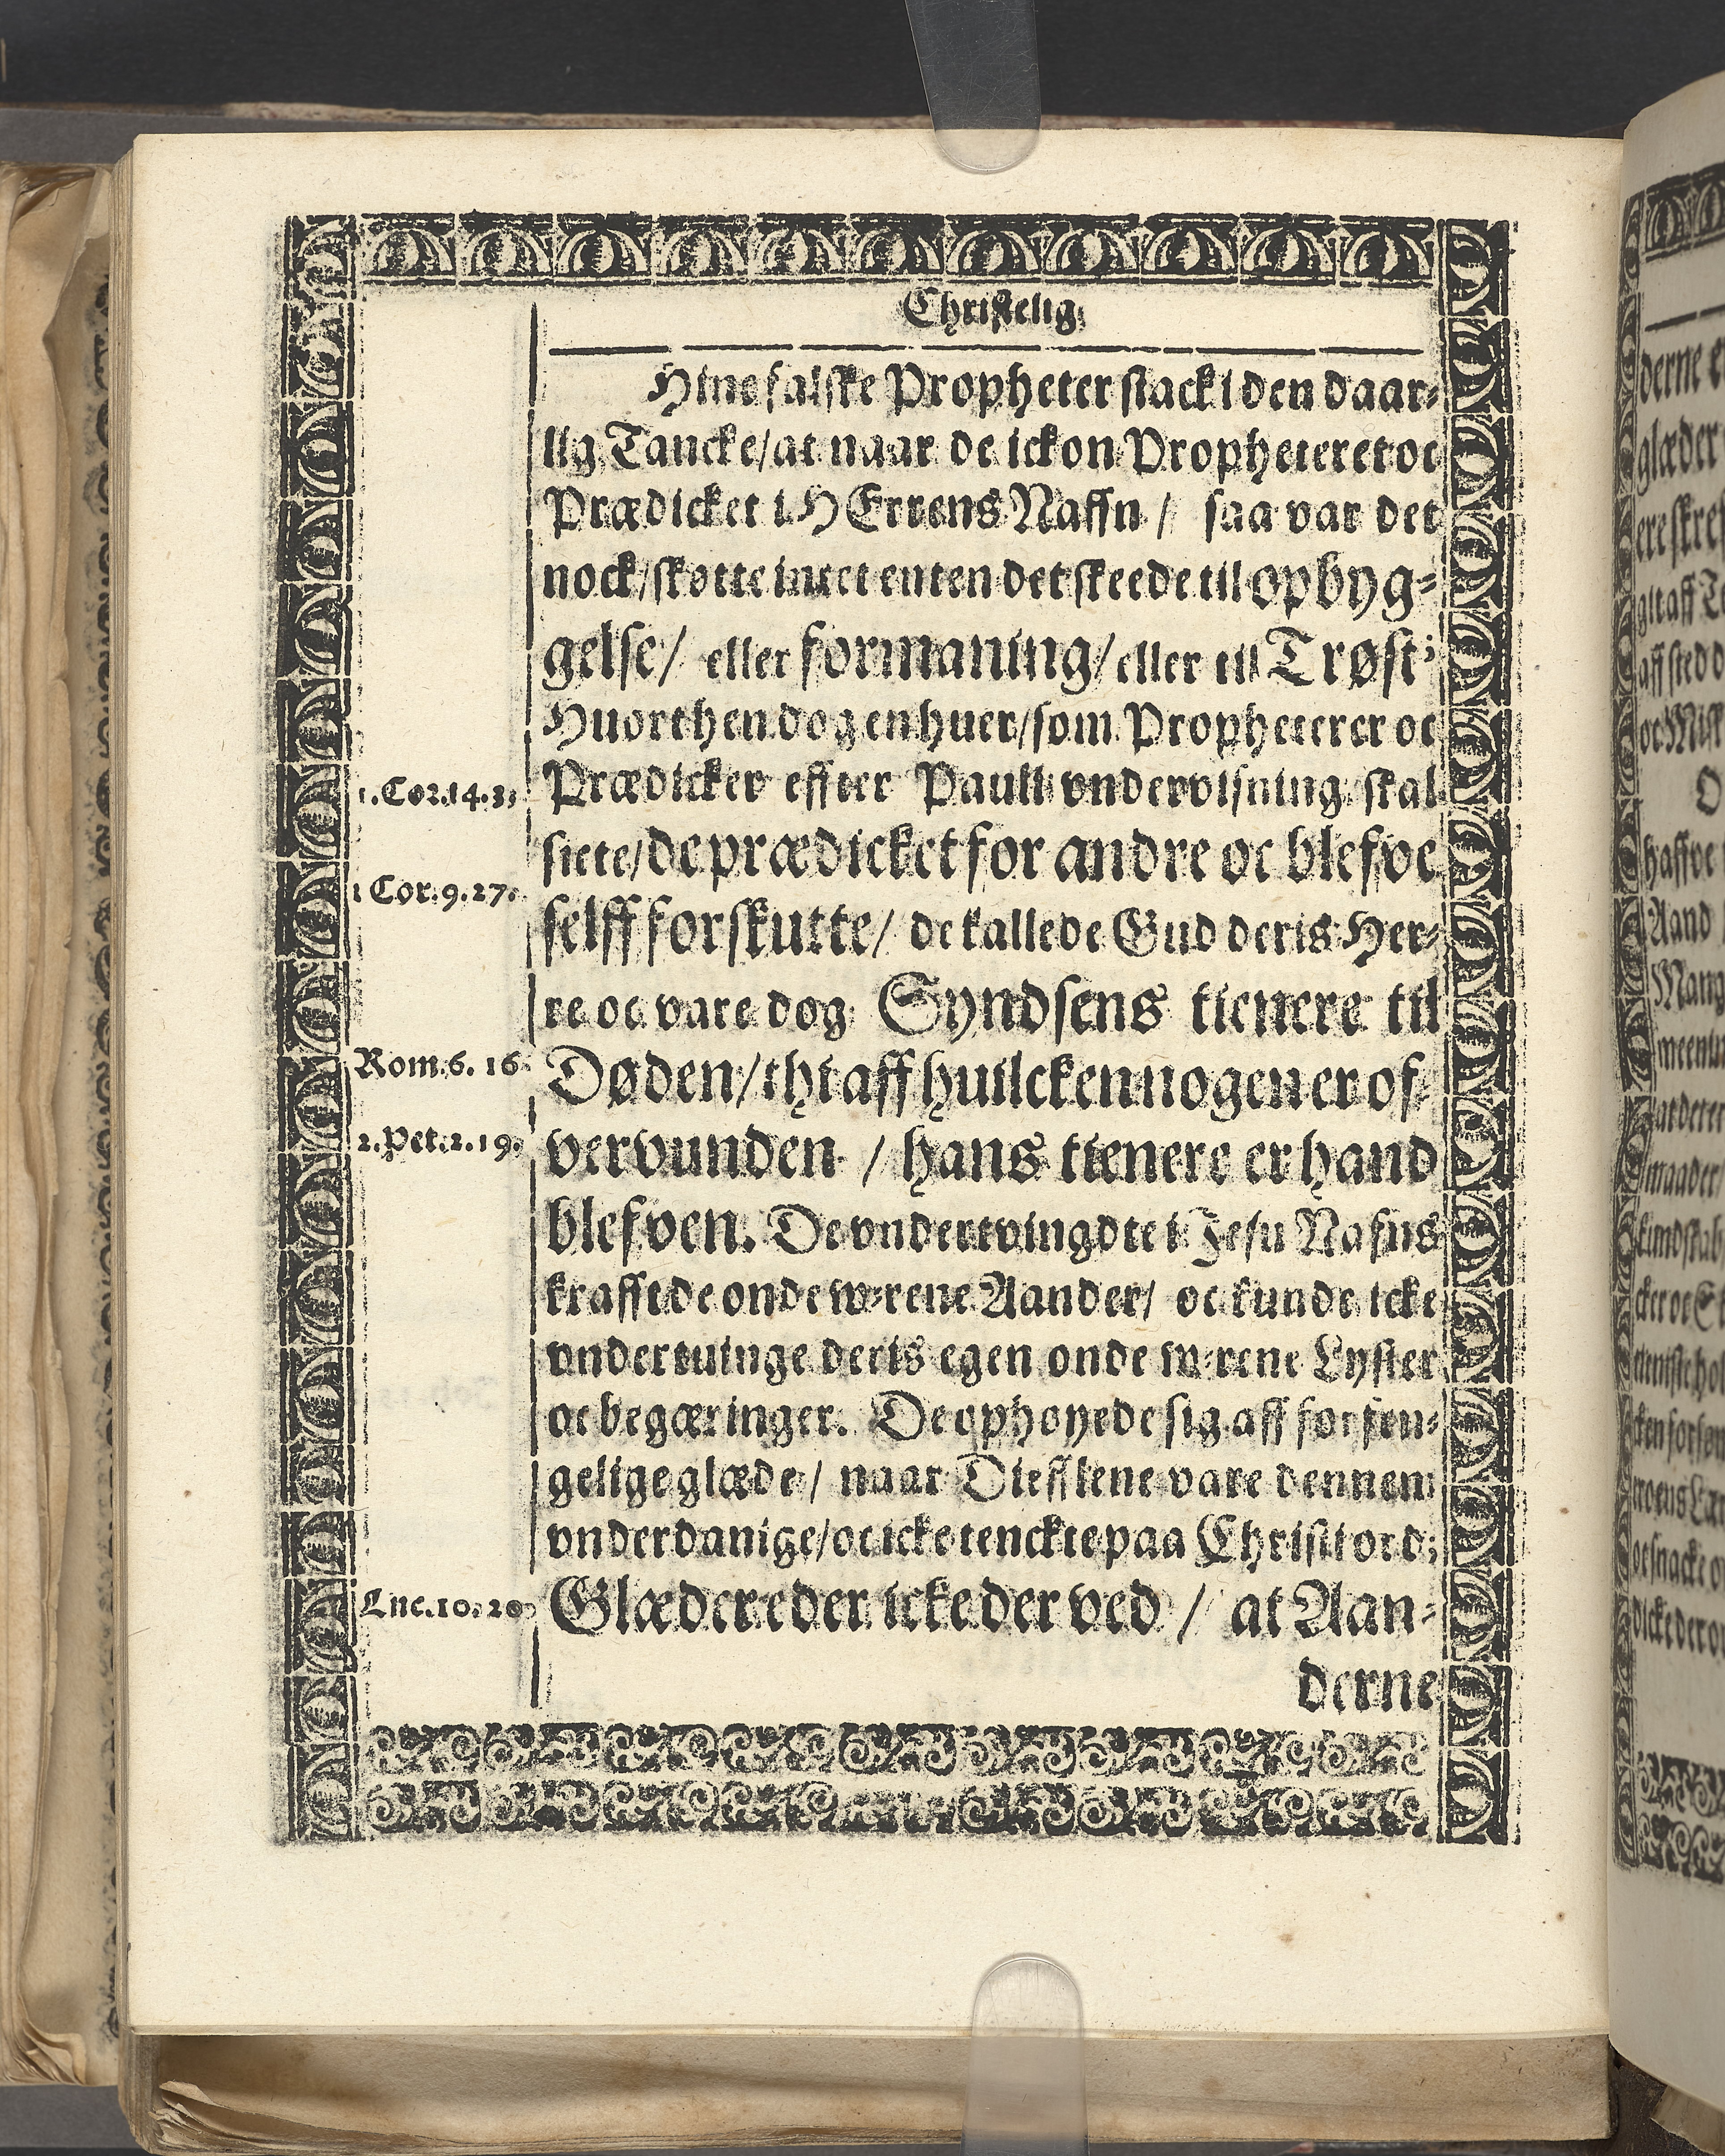 Christelig
Hine falske Propheter stack i den daar-
lig Tancke/ at naar de ickon Propheteret oc
Prædicket i HErrens Naffn/ saa var det
nock/ skøtte intet enten det skeede til opbyg-
gelse/ eller formaning/ eller till Trøst;
Huorthen dog en huer/ som Propheterer oc
1.Cor.14.3. Prædicker effter Pauli vndervisning skal
siete/ de prædicket for andre oc blefve
1 Cor.9.27. selff forskutte/ de kallede Gud deris Her-
re oc vare dog Syndsens tienere til
Rom.6.16. Døden/ thi aff huilcken nogen er of-
2.Pet.2.19. vervunden / hans tienere er hand
blefven. De vndertvingdte i Jesu Nafns
krafft de onde w-rene Aander/ oc kunde icke
vndertuinge deris egen onde w-rene Lyster
oc begæringer. De ophøyede sig aff forfen-
gelige glæde/ naar Diefflene vare dennem
vnderdanige/ oc icke tenckte paa Christi ord;
Luc.10.20 Glæder eder icke der ved / at Aan-
derne